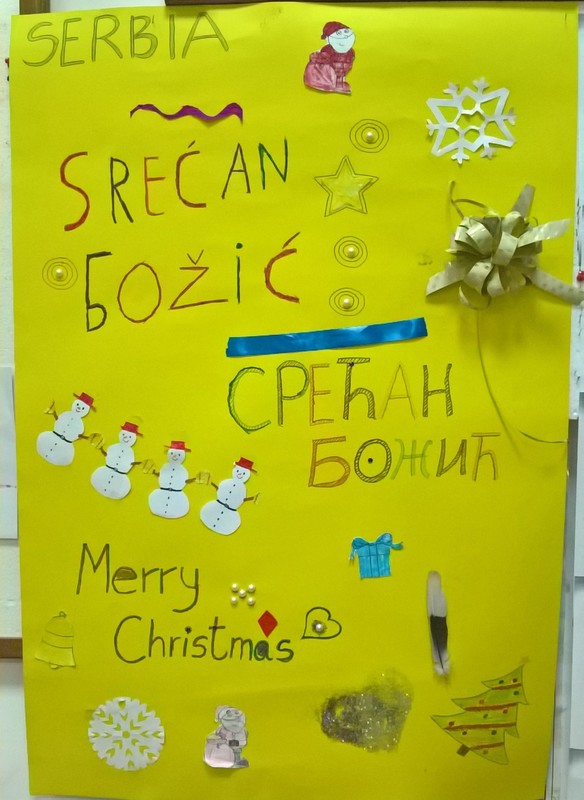 SERBIA
SREĆAN
БOŽiĆ
СРЕЋАН
БОЖИЋ
Merry
Christmas